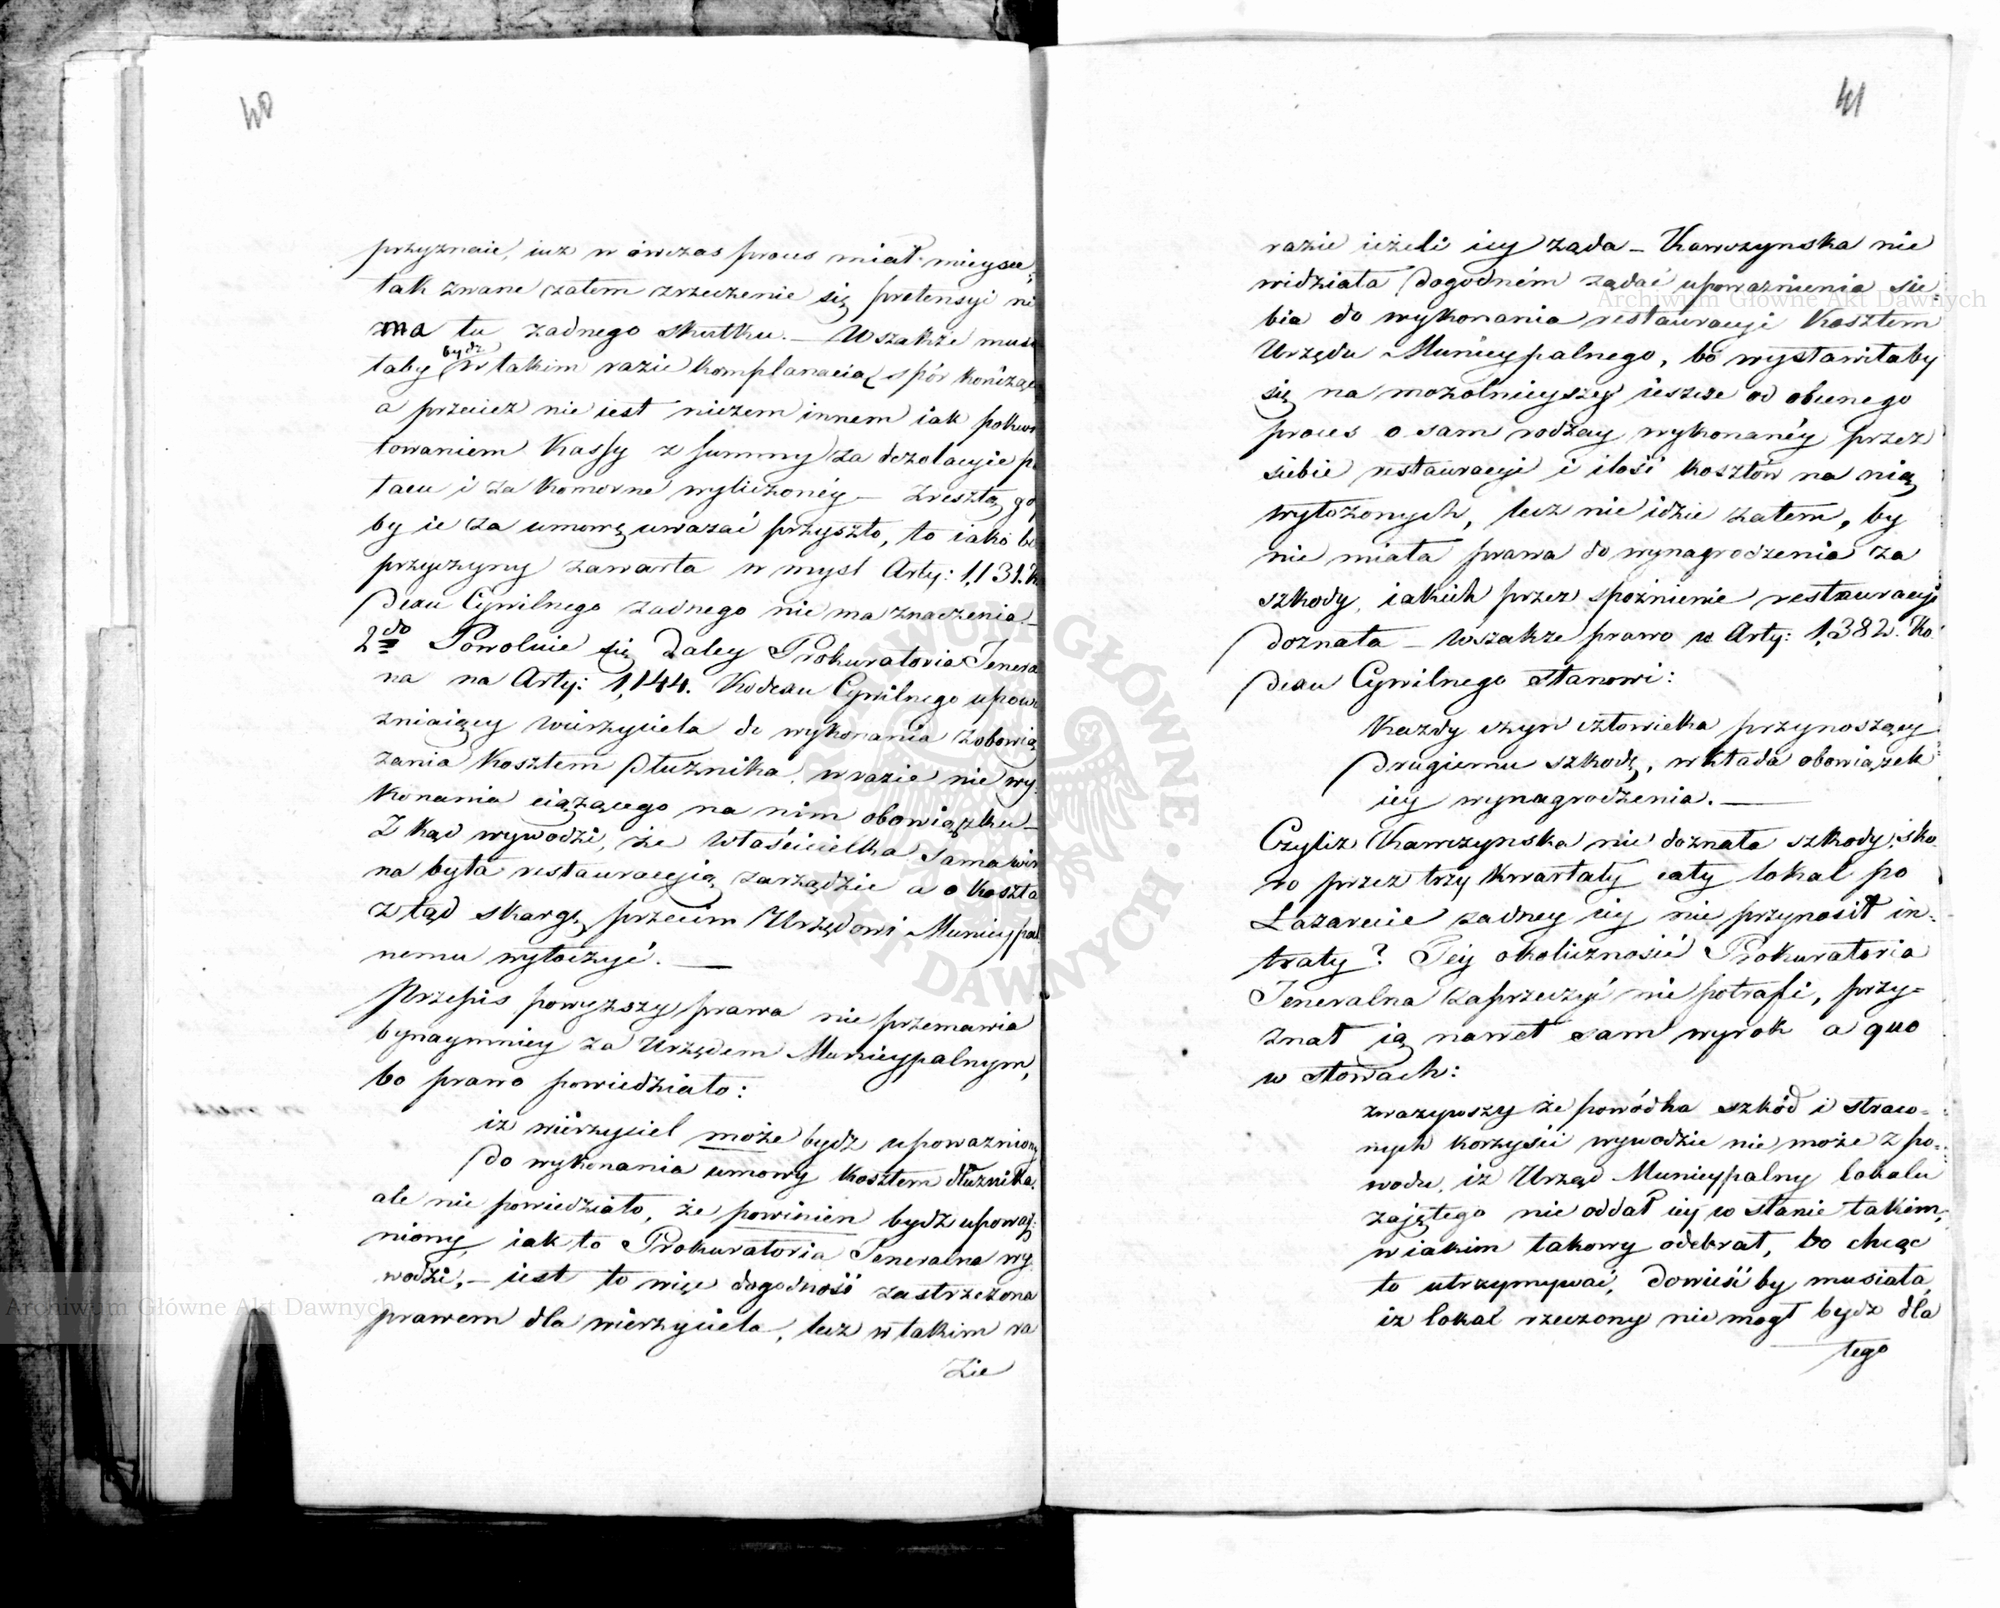 40
przyznaie, iuz w ówczas proces miał mieysce,
tak zwane zatem zrzeczenie się pretensyi nie
ma tu żadnego skutku. — Wszakże musia
łaby bydź w takim razie komplanacią spór kończącą
a przeciez nie iest niczem innem iak pokwi
towaniem Kassy z summy za dezolacyie pa
łacu i za komorne wyliczonéy — Zresztą gdy
by ie za umowę uważać przyszło, to iako bez
przyczyny zawarta w myśl Arty: 1,131. Ko
dexu Cywilnego żadnego nie ma znaczenia —
2do Powołuie się daley Prokuratoria Jeneral
na na Arty: 1,144. Kodexu Cywilnego upowa
żniaiący wierzyciela do wykonania zobowią
zania kosztem dłużnika, w razie nie wy
konania ciążącego na nim obowiązku —
Zkąd wywodzi, że właścicielka sama win
na była restauracyią zarządzić a o koszta
ztąd skargę przeciw Urzędowi Municypal
nemu wytoczyć. —
Przepis powyższy prawa nie przemawia
bynaymniey za Urzędem Municypalnym,
bo prawo powiedziało:
iż wierzyciel może bydź upoważniony
do wykonania umowy kosztem dłużnika.
ale nie powiedziało, że powinien bydź upoważ:
niony, iak to Prokuratoria Jeneralna wy
wodzi, — iest to więc dogodność zastrzeżona
prawem dla wierzyciela, lecz w takim ra
zie
41
razie ieżeli iey żąda — Kawczynska nie
widziała dogodném żądać upoważnienia sie
bia do wykonania restauracyi kosztem
Urzędu Municypalnego, bo wystawiłaby
się na mozolnieyszy ieszcze od obecnego
proces o sam rodzay wykonanéy przez
siebie restauracyi i ilość kosztów na nią
wyłożonych, lecz nie idzie zatem, by
nie miała prawa do wynagrodzenia za
szkody, iakich przez spoźnienie restauracyi
doznała — wszakże prawo w Arty: 1,382. Ko
dexu Cywilnego stanowi:
Każdy czyn człowieka przynoszący
drugiemu szkodę, wkłada obowiązek
iey wynagrodzenia. —
Czyliż Kawczynska nie doznała szkody, sko
ro przez trzy kwartały cały lokal po
Lazarecie żadney iey nie przynosił in-
traty? Téy okoliczności Prokuratoria
Jeneralna zaprzeczyć nie potrafi, przy-
znał ią nawet sam wyrok a quo
w słowach:
zważywszy że powódka szkód i straco-
nych korzyści wywodzić nie może z po-
wodu, iż Urząd Municypalny lokalu
zajętego nie oddał iey w stanie takim,
w iakim takowy odebrał, bo chcąc
to utrzymywać, dowieść by musiała,
iż lokal rzeczony nie mogł bydź dla
tego
Archiwum Główne Akt Dawnych
Archiwum Główne Akt Dawnych
ARCHIWUM GŁÓWNE AKT DAWNYCH